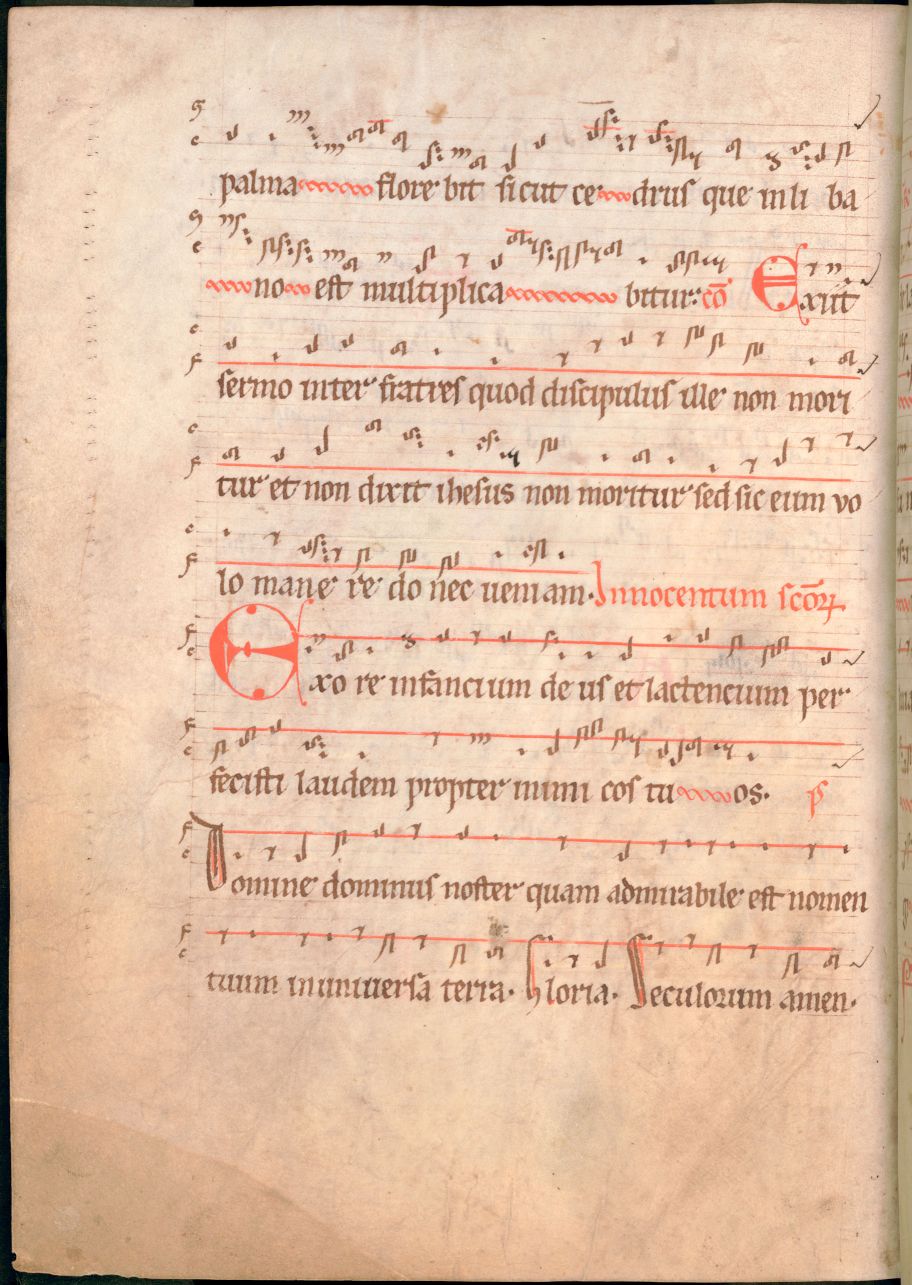 palma flore bit sicut ce drus que inli ba
no est multiplica bitur: cō Exiit
sermo inter fratres quod discipulus ille non mori
tur et non dixit ihesus non moritur sed sic eum vo
lo mane re do nec ueniam. Innocentum scōꝝ
Exo re infancium de us et lactencium per
fecisti laudem propter inimi cos tu os. p̄
Domine dominus noster quam admirabile est nomen
tuum in uniuersa terra. Gloria. Seculorum amen.